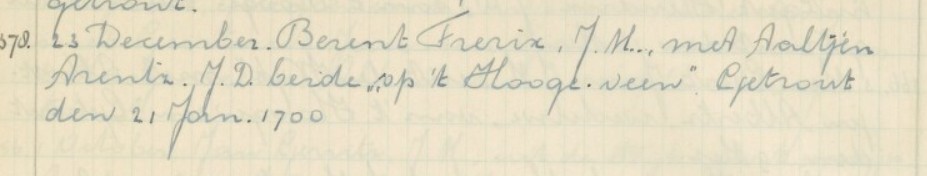 getrout.
378. 23 December. Berent Frerix, J.M., met Aaltjen
Arentx. J.D. beide „op 't Hooge. veen" Getrout
den 21 Jan. 1700